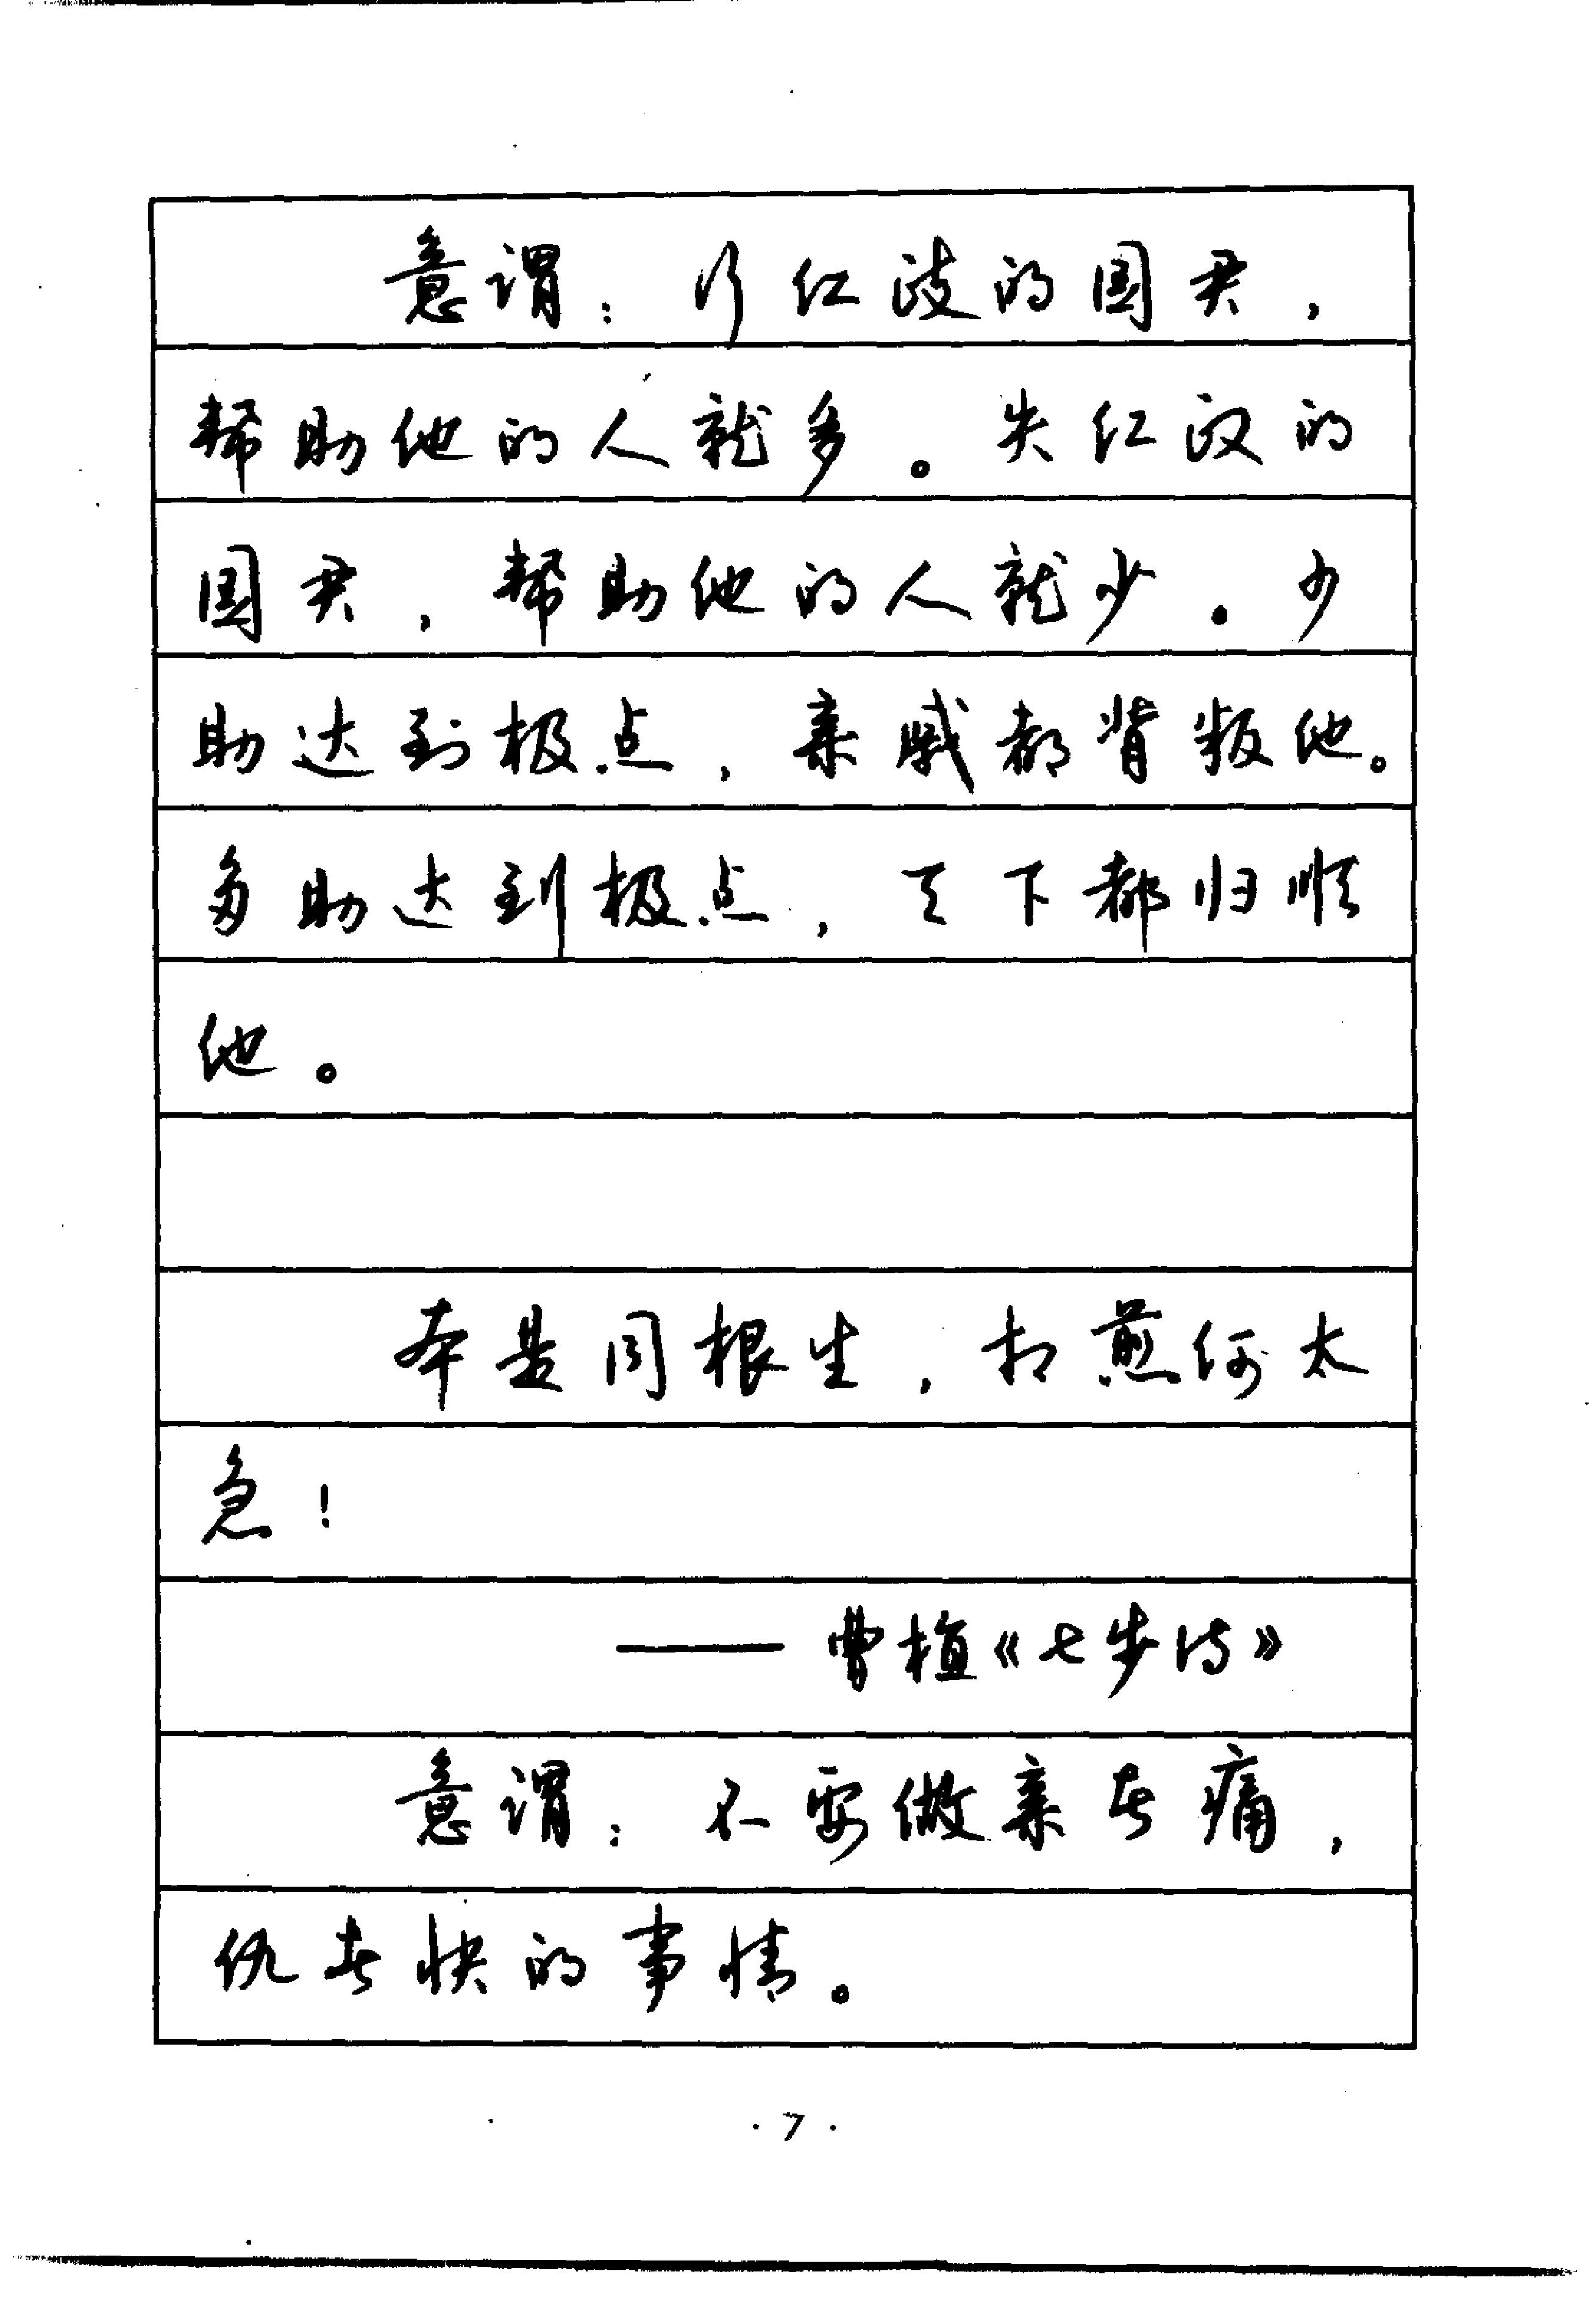 意谓：行仁政的国君，
帮助他的人就多。失仁政的
国君，帮助他的人就少。少
助达到极点，亲戚都背叛他。
多助达到极点，天下都归顺
他。
本是同根生，相煎何太
急！
——曹植《七步诗》
意谓：不要做亲者痛，
仇者快的事情。
·7·